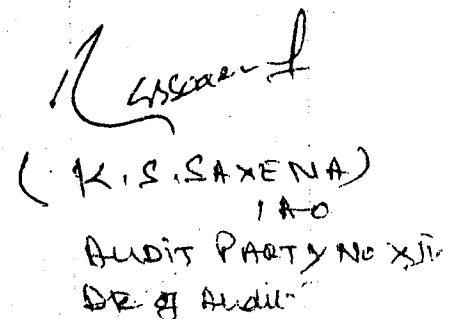 ( K.S.SAXENA)
IAO
AUDIT PARTY No XII.
DR of Audit